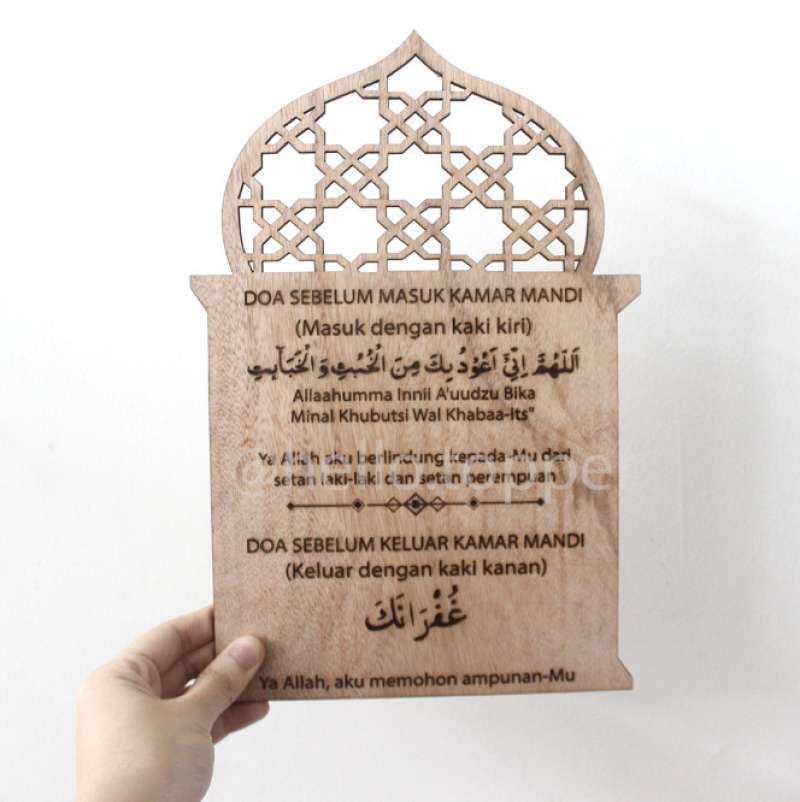 DOA SEBELUM MASUK KAMAR MANDI
(Masuk dengan kaki kiri)
اَللّٰهُمَّ اِنِّيْ اَعُوْذُ بِكَ مِنَ الْخُبُثِ وَالْخَبَآئِثِ
Allaahumma Innii A'uudzu Bika
Minal Khubutsi Wal Khabaa-its"
Ya Allah aku berlindung kepada-Mu dari
setan laki-laki dan setan perempuan
DOA SEBELUM KELUAR KAMAR MANDI
(Keluar dengan kaki kanan)
غُفْرَانَكَ
Ya Allah, aku memohon ampunan-Mu